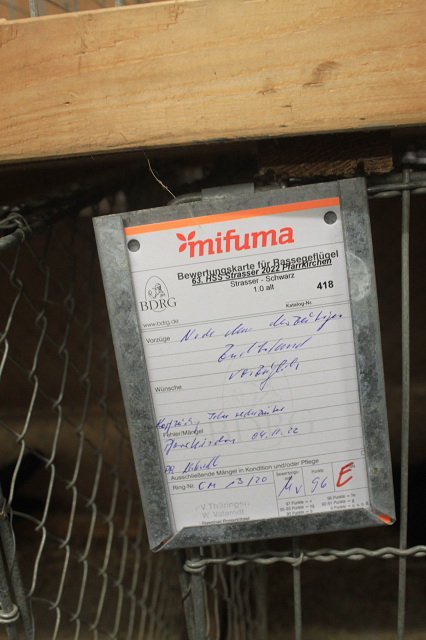 mifuma
Bewertungskarte für Rassegeflügel
63. HSS Strasser 2022 Pfarrkirchen
Strasser - Schwarz
1.0 alt
Katalog-Nr.
418
BDRG
www.bdrg.de
Vorzüge Nach dem derzeitigen
Zuchtstand
vorzüglich
Wünsche
Fehler/Mängel
Pfarrkirchen 04.11.22
PR
Ausschließende Mängel in Kondition und/oder Pflege
Ring-Nr.
Bewertungs-
Punkte
hv 96 E